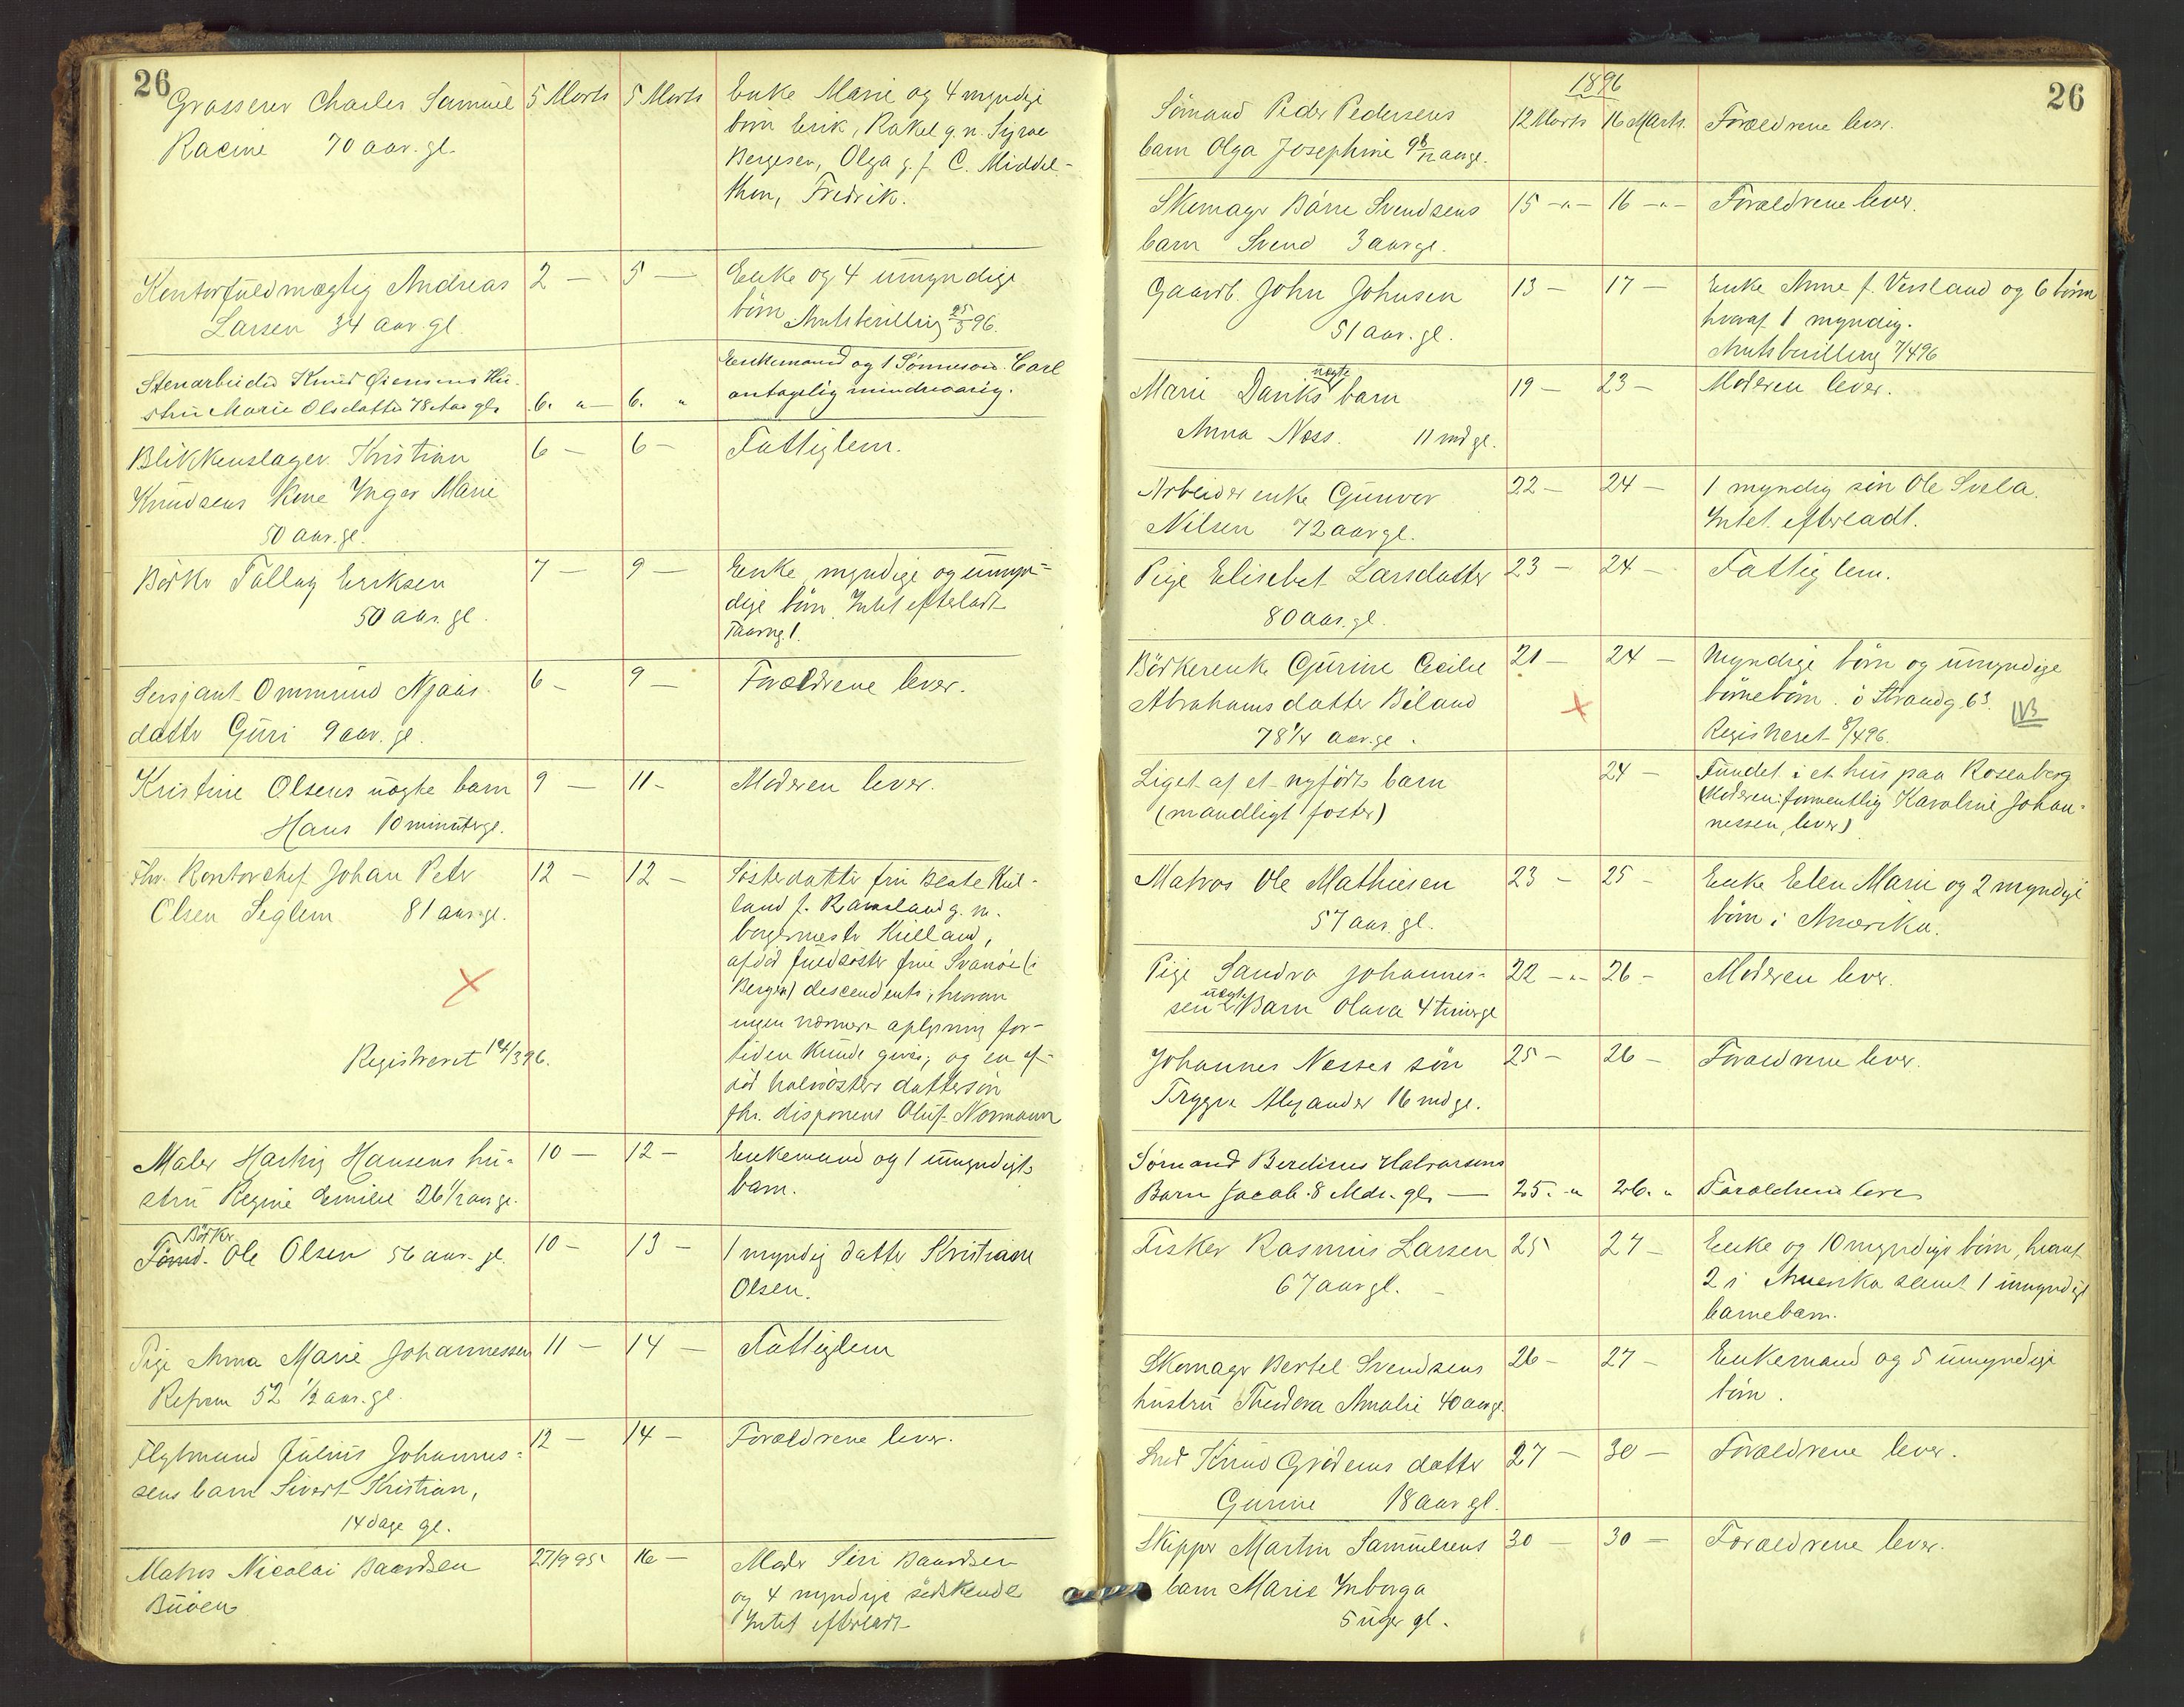 26
Grosserer Charles Samuel 5 Marts 5 Marts Enke Marie og 4 myndige
børn Erik, Rakel g. m.
Racine 70 aar. gl.
Bergesen, Olga g. f. C. Middel-
thon, Fredrik.
Kontorfuldmægtig Andreas 2 — 5 — Enke og 4 umyndige
Larsen 34 aar. gl. børn. 25/3 96.
Stenarbeider Knud Hu- Enkemand og 1 Sønnesøn Carl
stru Marie Olsdatter 78 Aar gl. 6. " — 6. " antagelig mindreaarig.
Blikkenslager Kristian 6 — 6 — Fattiglem.
Knudsens kone Inger Marie
50 aar. gl.
Bødker Tallag Eriksen 7 — 9 — Enke, myndige og umyn-
50 aar. gl. dige børn. Intet efterladt
Taarng. 1.
Sersjant Ommund Njaas 6 — 9 — Forældrene lever.
datter Guri 9 aar. gl.
Kristine Olsens uægte barn 9 — 11 — Moderen lever.
Hans 10 minuter gl.
Fhv. Kontorchef Johan Peter 12 — 12 — Søsterdatter fru Beate Kiel-
Olsen Seglem 81 aar. gl. land f. Ramsland g. m.
borgermester Kielland,
afdød fuldsøster frue Svanøe (i
Bergen) descendents, hvorom
ingen nærmere oplysning for-
tiden kunde gives, og en af-
Registreret 14/3 96. død halvsøsters dattersøn
fhv. disponent Oluf Normann
Maler Hartvig Hansens hu- 10 — 12 — Enkemand og 1 umyndigt
stru Regine Emilie 26 1/2 aar gl. barn.
Bødker
Tømd. Ole Olsen 56 aar. gl. 10 — 13 — 1 myndig datter Kristiane
Olsen.
Pige Anna Marie Johannessen 11 — 14 — Fattiglem
52 1/2 aar. gl.
Flytmand Julius Johannes- 12 — 14 — Forældrene lever.
sens barn Sivert Kristian,
14 dage gl.
Matros Nicolai Baardsen 27/9 95. 16 — Moder Siri Baardsen
og 4 myndige søskende
Intet efterladt
26
1896
Sømand Peder Pedersens 12 Marts 16 Marts. Forældrene lever.
barn Olga Josephine 9 8/12 aar gl.
Skomager Børre Svendsens 15 — " — 16 — " — Forældrene lever.
barn Svend 3 aar gl.
Gaardb. John Johnsen 13 — 17 — Enke Anne f. Versland og 6 børn
51 aar. gl. hvoraf 1 myndig.
7/4 96
uægte
Marie Danks barn 19 — 23 — Moderen lever.
Anna Ness. 11 md gl.
Arbeider enke Gunvor 22 — 24 — 1 myndig søn Ole Svela.
Nilsen 72 aar gl. Intet efterladt.
Pige Elisebet Larsdatter 23 — 24 — Fattiglem.
80 aar. gl.
Bødkerenke Gurine Cecilie 21 — 24 — Myndige børn og umyndige
Abrahamsdatter Biland børnebørn. ö Strandg. 63.
78 1/4 aar. gl. Registreret 8/4 96.
Liget af et nyfødt barn 24 — Fundet i et hus paa Rosenberg
(mandligt foster) (Moderen: formentlig Karoline Johan-
nessen, lever)
Matros Ole Mathiesen 23 — 25 — Enke Elen Marie og 2 myndige
57 aar. gl. børn i Amerika.
Pige Sandra Johannes- 22 — " — 26 — Moderen lever.
uægte
sens Barn Olava 4 timer gl
Johannes Nesses søn 25 — 26 — Forældrene lever.
Trygve Alexander 16 md gl.
Sømand Berdinus Halvorsens
Barn Jacob. 8 Mdr. gl. — 25. " 26. " Forældrene lever
Fisker Rasmus Larsen 25 27 — Enke og 10 myndige børn, hvoraf
67 aar gl. 2 i Amerika samt 1 umyndigt
barnebarn.
Skomager Bertel Svendsens 26 — 27 — Enkemand og 5 umyndige
hustru Theodora Amalie 40 aar gl. børn.
Smed Knud Grødems datter 27 — 30 — Forældrene lever.
Gurine 18 aar gl.
Skipper Martin Samuelsens 30 — 30 — Forældrene lever.
barn Marie Inborga
5 uger gl.